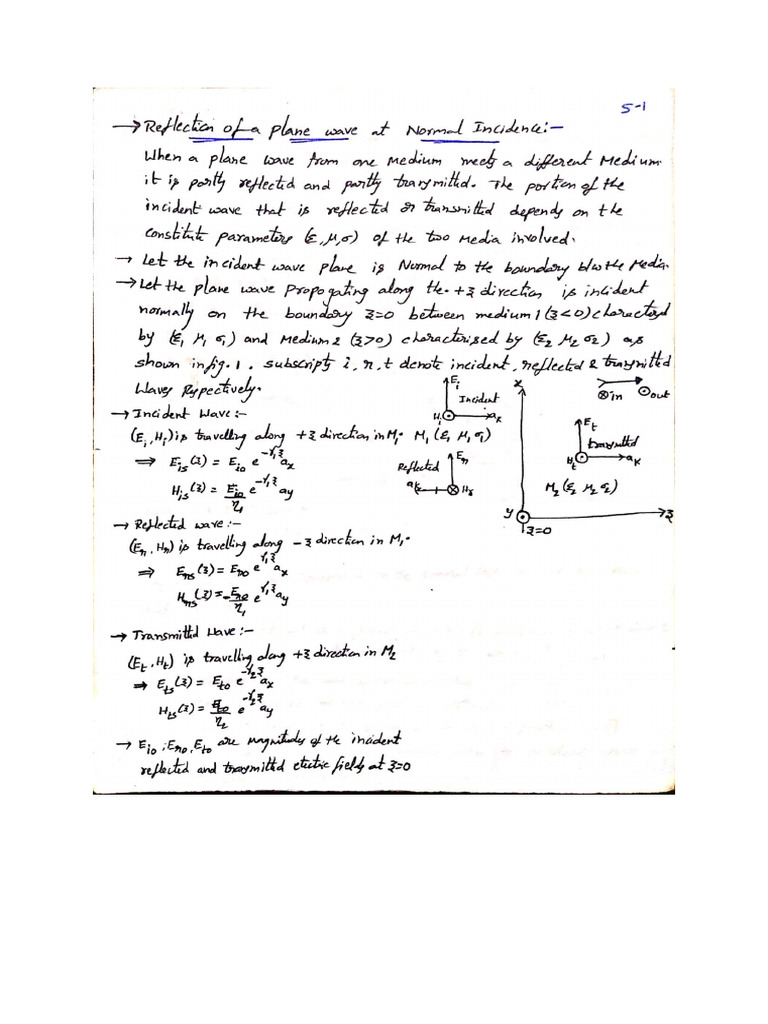 5-1
→ Reflection of a plane wave at Normal Incidence:-
When a plane wave from one Medium meets a different Medium
it is partly reflected and partly transmitted. The portion of the
incident wave that is reflected or transmitted depends on the
constitute parameters (ε, μ, σ) of the two media involved.
→ Let the incident wave plane is Normal to the boundary b/w the Media.
→ Let the plane wave propogating along the +z direction is incident
normally on the boundary z=0 between medium 1 (z<0) characterized
by (ε₁ μ₁ σ₁) and medium 2 (z>0) characterised by (ε₂ μ₂ σ₂) as
shown in fig. 1. subscripts i, r, t denote incident, reflected & transmitted
waves respectively.
→ Incident Wave:-
(Ei, Hi) is travelling along +z direction in M₁.
⇒ Eis(z) = Eio e^-γ₁z ax
His(z) = Eio/η₁ e^-γ₁z ay
→ Reflected wave:-
(Er, Hr) is travelling along -z direction in M₁.
⇒ Ers(z) = Ero e^γ₁z ax
Hrs(z) = -Ero/η₁ e^γ₁z ay
→ Transmitted wave:-
(Et, Ht) is travelling along +z direction in M₂
⇒ Ets(z) = Eto e^-γ₂z ax
Hts(z) = Eto/η₂ e^-γ₂z ay
→ Eio, Ero, Eto are magnitudes of the incident
reflected and transmitted electric fields at z=0
Ei
Incident
Hi
ak
M₁ (ε₁ μ₁ σ₁)
Reflected
Er
ak
Hr
x
in
out
Et
transmitted
Ht
ak
M₂ (ε₂ μ₂ σ₂)
y
z
z=0